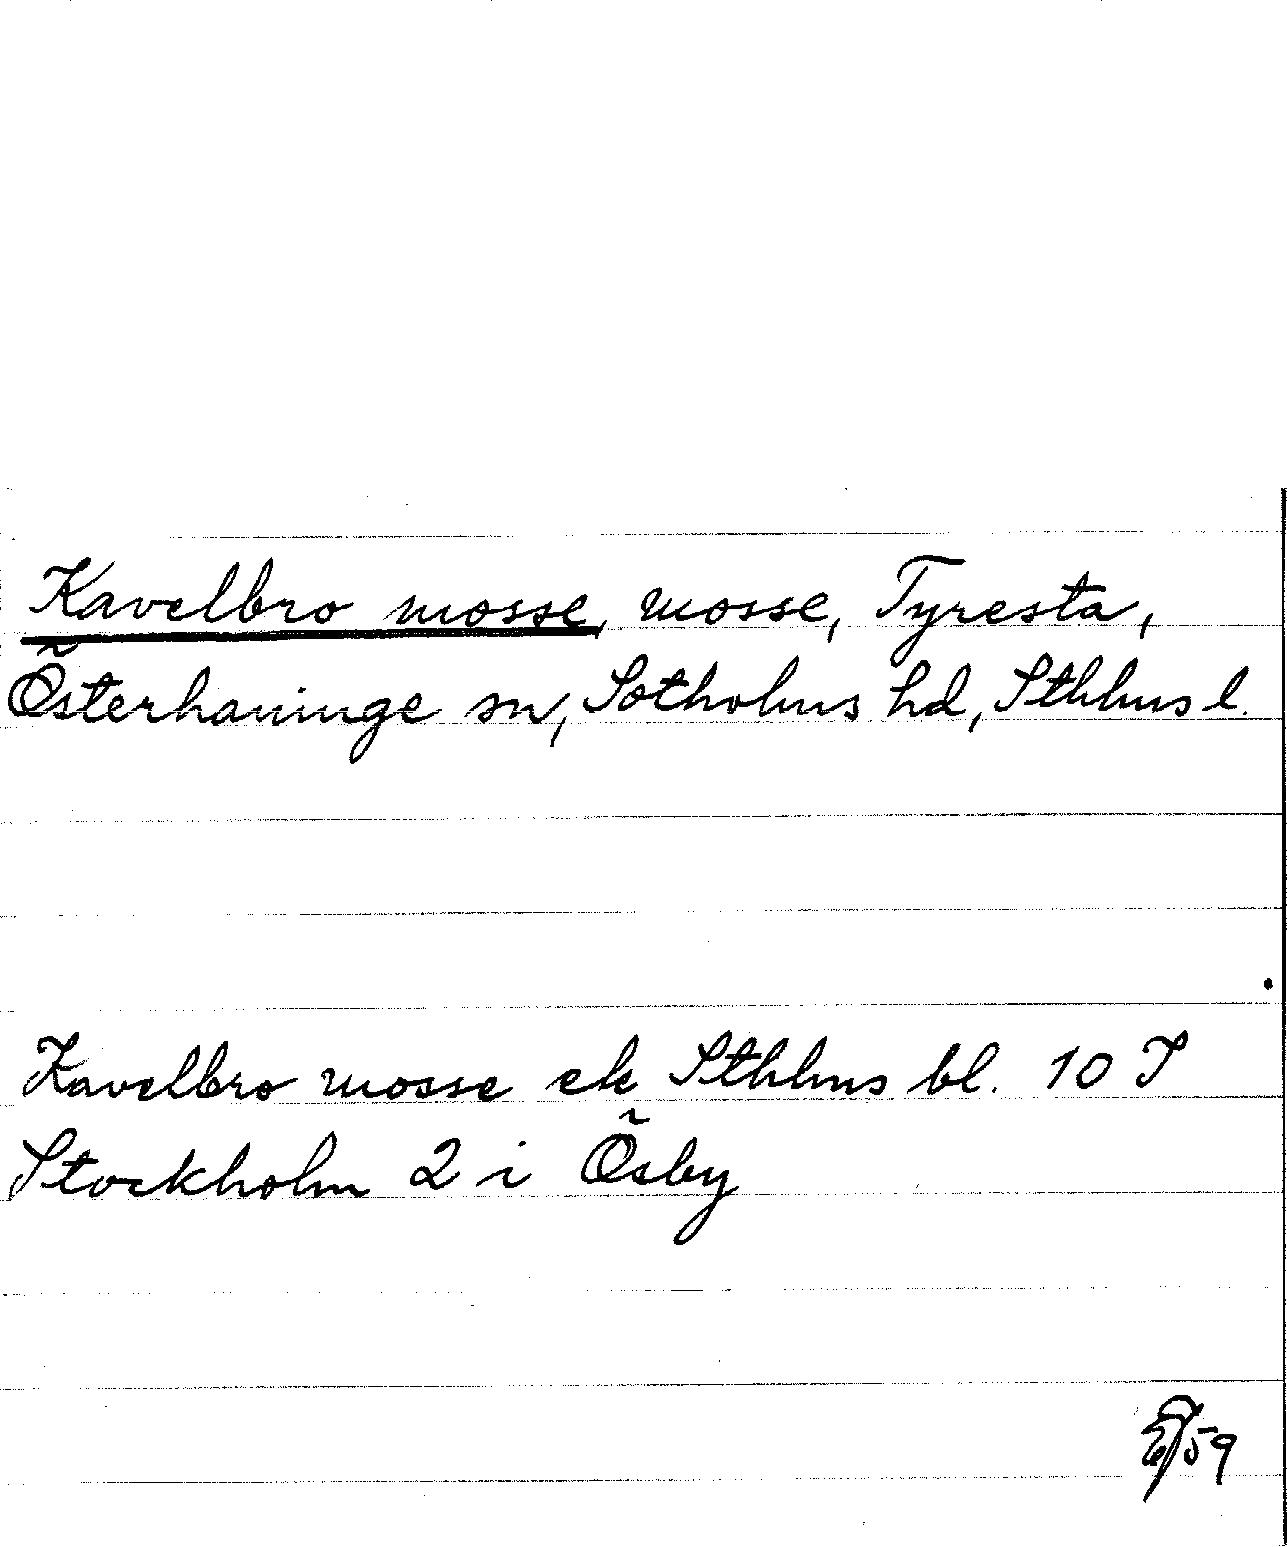 Kavelbro mosse, mosse, Tyresta,
Österhaninge sn, Sotholms hd, Sthlms l.
Kavelbro mosse ek Sthlms bl. 10 I
Stockholm 2 i Ösby
59